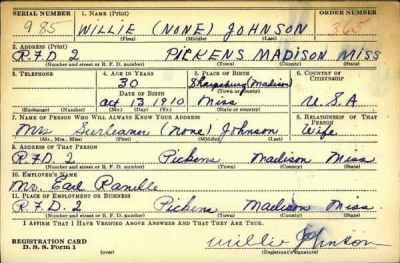 SERIAL NUMBER 1. NAME (Print) ORDER NUMBER
985 WILLIE (NONE) JOHNSON 365
(First) (Middle) (Last)
2. ADDRESS (Print)
R.F.D. 2 PICKENS MADISON MISS
(Number and street or R. F. D. number) (Town) (County) (State)
3. TELEPHONE 4. AGE IN YEARS 5. PLACE OF BIRTH 6. COUNTRY OF CITIZENSHIP
30 Sharpsburg (Madison)
DATE OF BIRTH (Town or county)
Oct 13 1910 Miss U.S.A
(Exchange) (Number) (Mo.) (Day) (Yr.) (State or country)
7. NAME OF PERSON WHO WILL ALWAYS KNOW YOUR ADDRESS 8. RELATIONSHIP OF THAT PERSON
Mrs (None) Johnson Wife
(Mr., Mrs., Miss) (First) (Middle) (Last)
9. ADDRESS OF THAT PERSON
R.F.D. 2 Pickens Madison Miss.
(Number and street or R. F. D. number) (Town) (County) (State)
10. EMPLOYER'S NAME
Mr. Earl
11. PLACE OF EMPLOYMENT OR BUSINESS
R.F.D. 2 Pickens Madison Miss
(Number and street or R. F. D. number) (Town) (County) (State)
I AFFIRM THAT I HAVE VERIFIED ABOVE ANSWERS AND THAT THEY ARE TRUE.
REGISTRATION CARD
D. S. S. Form 1 (over) Willie Johnson
(Registrant's signature)